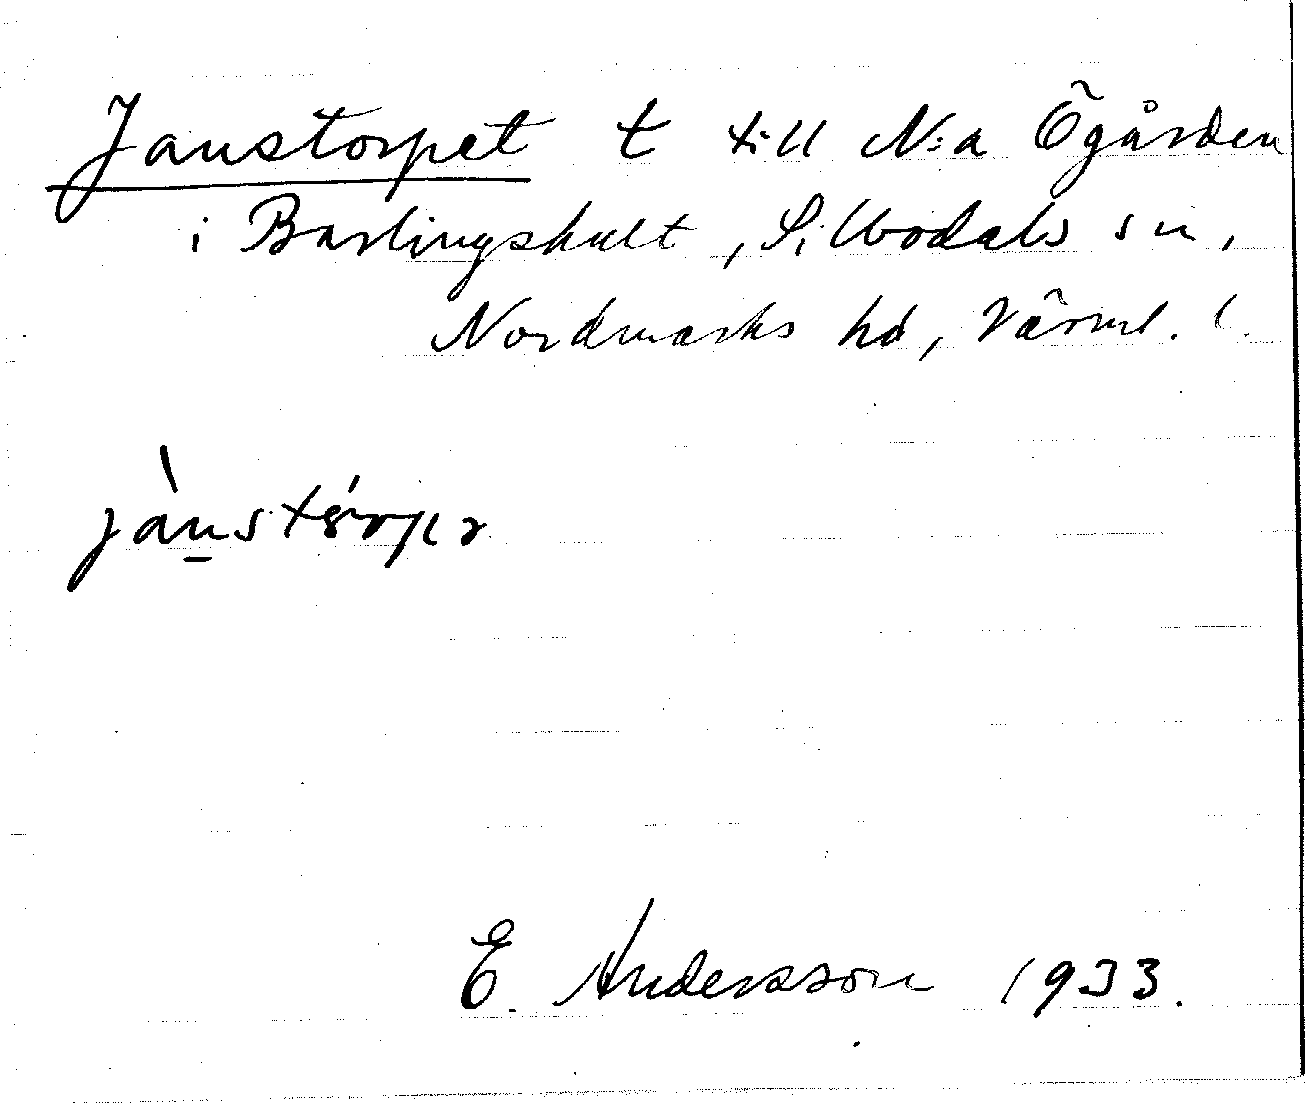 Janstorpet t till N:a Ögården
i Barlingshult, Silbodals sn,
Nordmarks hd, Värml. l.
E. Andersson 1933.